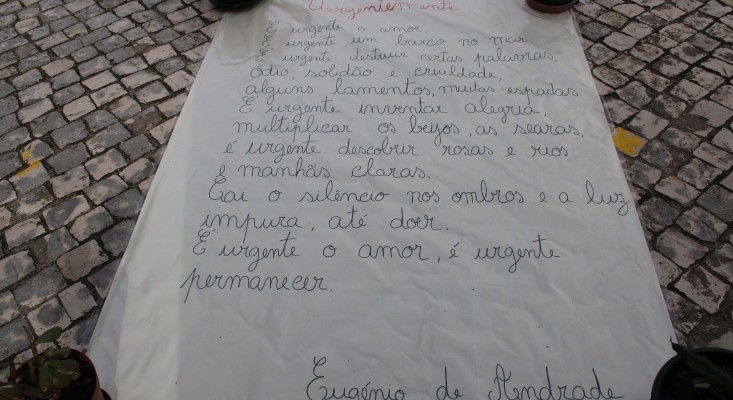 Urgentemente
É urgente o amor
É urgente um barco no mar
É urgente destruir certas palavras,
ódio, solidão e crueldade,
alguns lamentos, muitas espadas.
É urgente inventar alegria,
multiplicar os beijos, as searas,
é urgente descobrir rosas e rios
e manhãs claras.
Cai o silêncio nos ombros e a luz
impura, até doer.
É urgente o amor, é urgente
permanecer.
Eugénio de Andrade